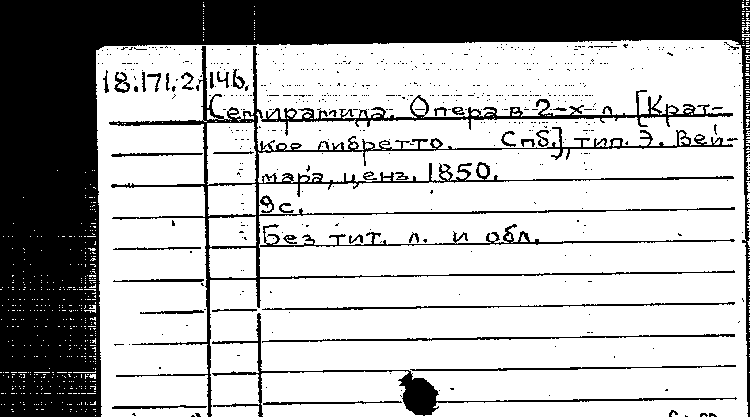 18.171.2.146.
Семирамида. Опера в 2-х д. [Крат-
кое либретто. Спб.], тип. Э. Вей-
мара, ценз. 1850.
9с.
Без тит. л. и обл.